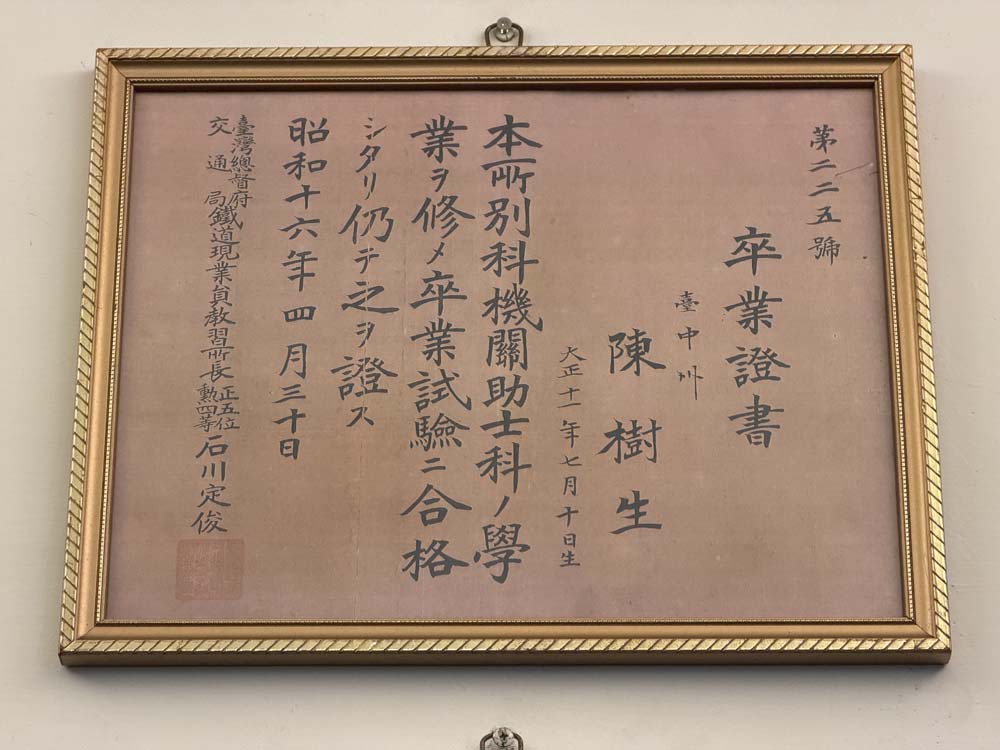 第二二五號
卒業證書
臺中州
陳樹生
大正十一年七月十日生
本所別科機關助士科ノ學
業ヲ修メ卒業試驗ニ合格
シタリ仍テ之ヲ證ス
昭和十六年四月三十日
臺灣總督府
交通局
鐵道現業員教習所長
正五位
勲四等
石川定俊